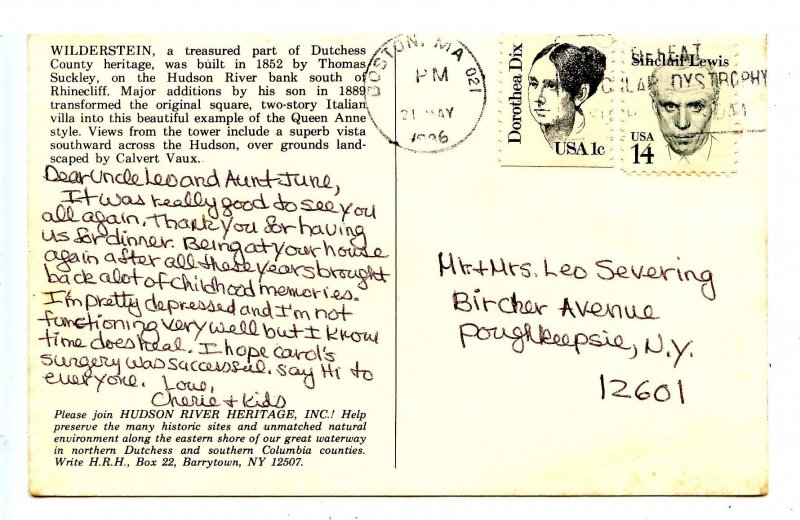 WILDERSTEIN, a treasured part of Dutchess
County heritage, was built in 1852 by Thomas
Suckley, on the Hudson River bank south of
Rhinecliff. Major additions by his son in 1889
transformed the original square, two-story Italian
villa into this beautiful example of the Queen Anne
style. Views from the tower include a superb vista
southward across the Hudson, over grounds land-
scaped by Calvert Vaux.
Dear Uncle Leo and Aunt June,
It was really good to see you
all again. Thank you for having
us for dinner. Being at your house
again after all these years brought
back alot of childhood memories.
I'm pretty depressed and I'm not
functioning very well but I know
time does heal. I hope Carol's
surgery was saccessful. Say Hi to
everyone. Love,
Cherie + Kids
Please join HUDSON RIVER HERITAGE, INC.! Help
preserve the many historic sites and unmatched natural
environment along the eastern shore of our great waterway
in northern Dutchess and southern Columbia counties.
Write H.R.H., Box 22, Barrytown, NY 12507.
BOSTON, MA 021
PM
21 MAY
1986
Dorothea Dix
USA 1c
Sinclair Lewis
USA
14
DYSTROPHY
Mr. + Mrs. Leo Severing
Bircher Avenue
Poughkeepsie, N.Y.
12601